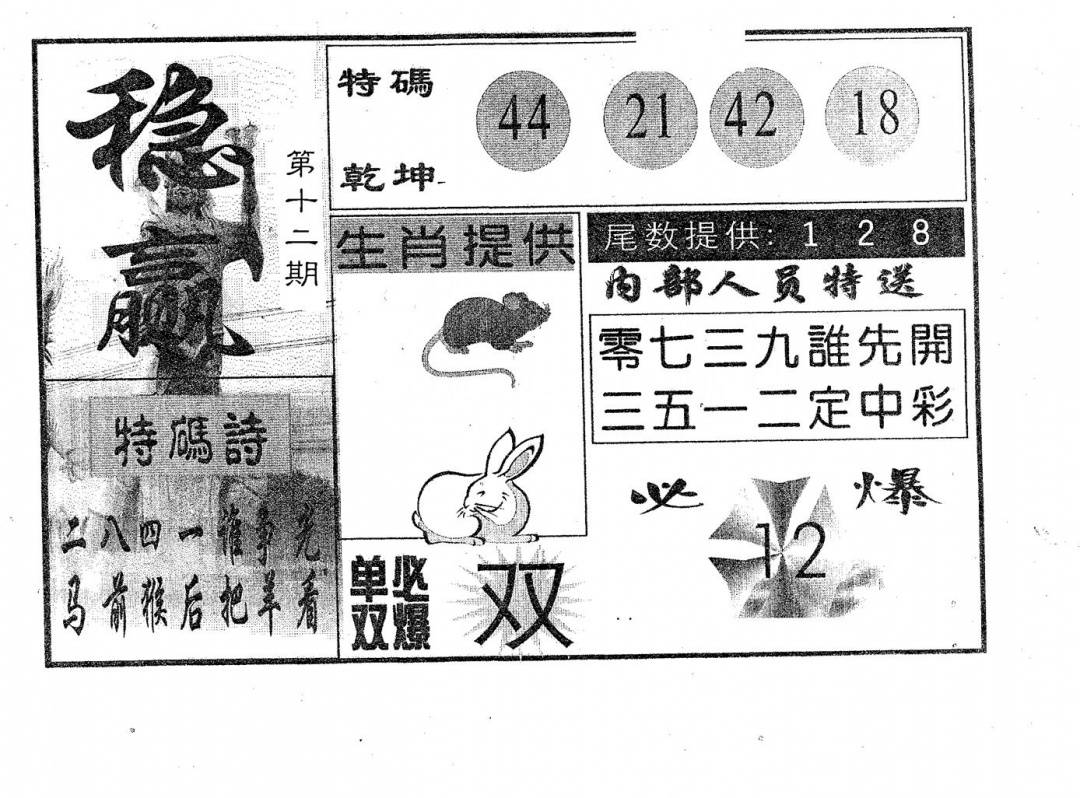 稳赢
第十二期
特碼
乾坤
44 21 42 18
生肖提供
尾数提供: 1 2 8
内部人员特送
零七三九誰先開
三五一二定中彩
特碼詩
二八四一谁争先
马前猴后把羊看
单双必爆
双
必爆
12